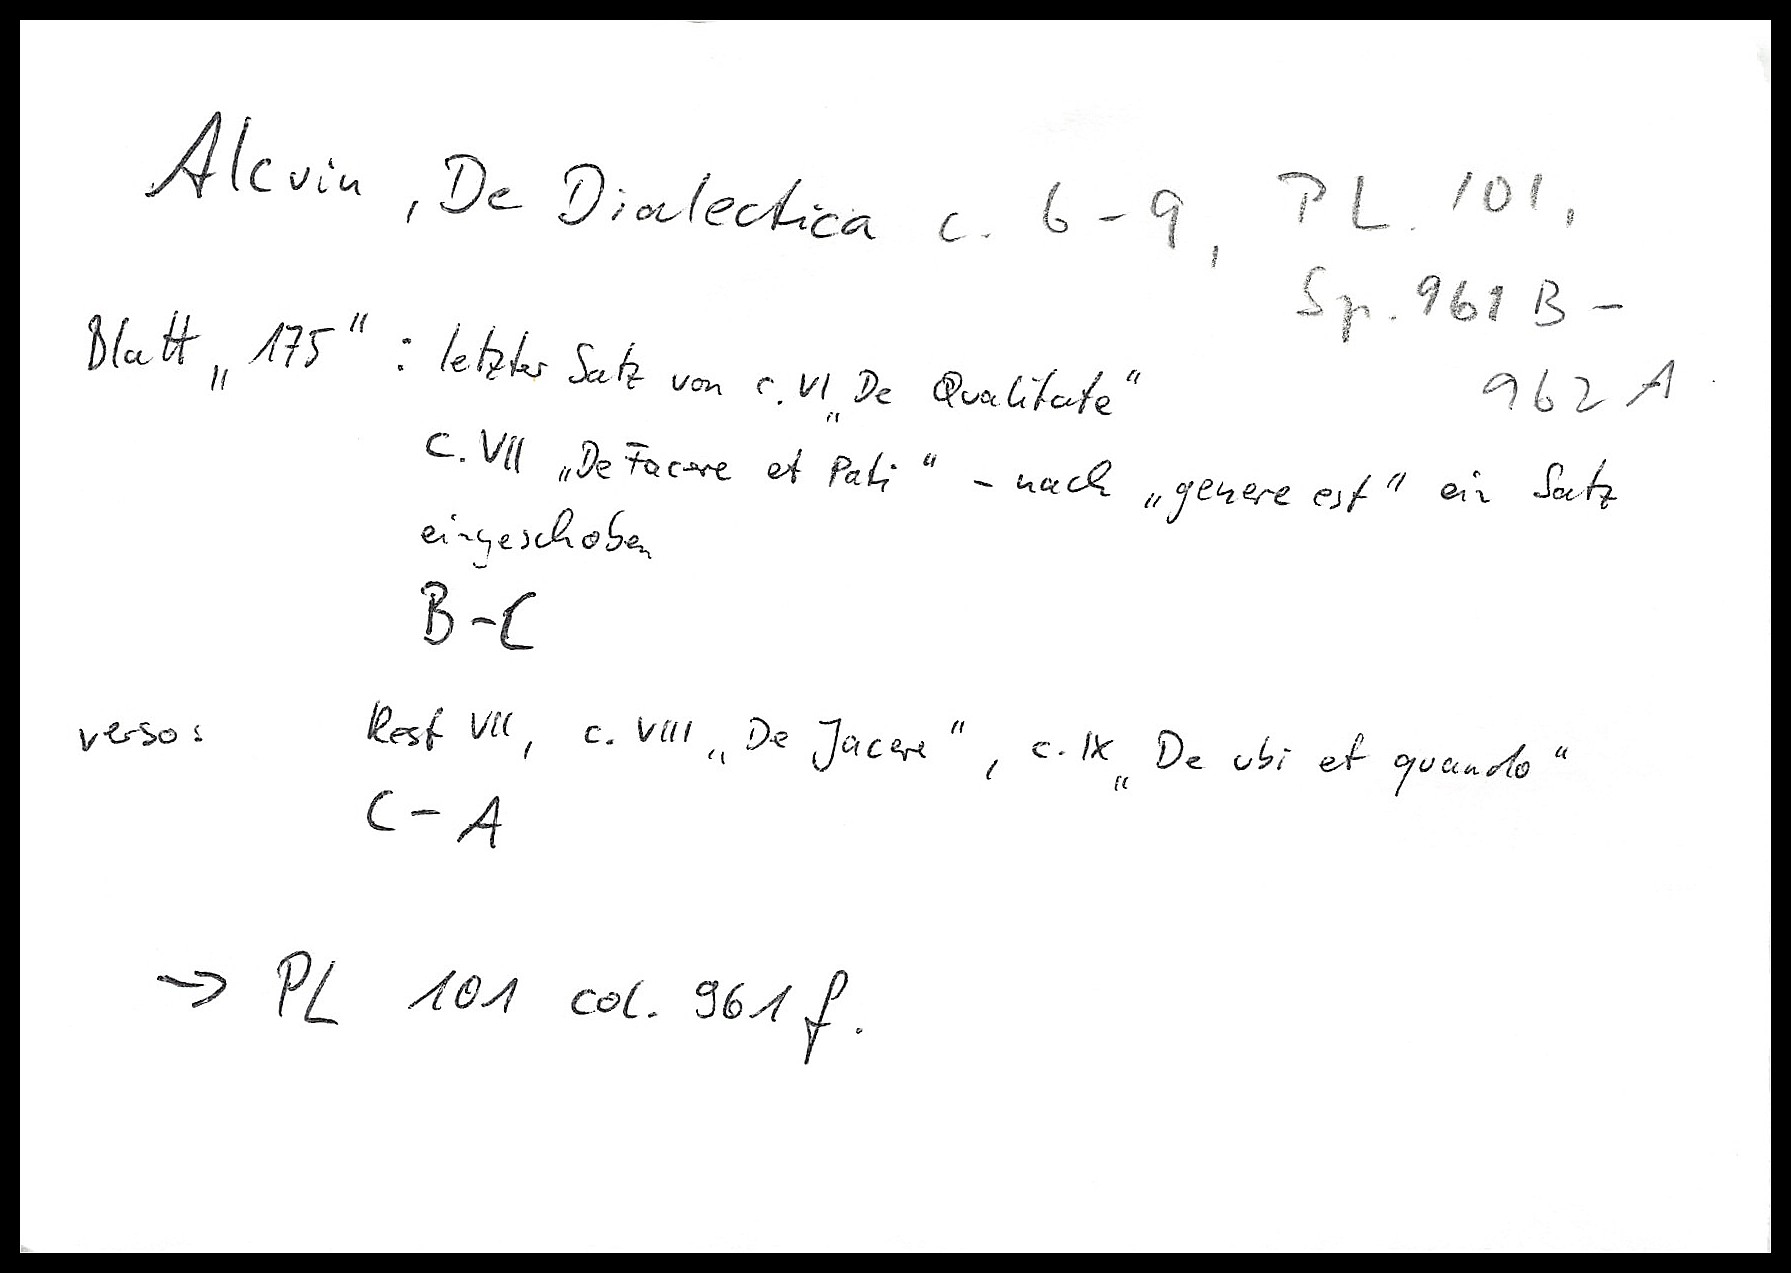 Alcuin, De Dialectica c. 6-9, PL. 101,
Sp. 961 B -
962 A
Blatt „175“: letzter Satz von c. VI „De Qualitate“
c. VII „De Facere et Pati“ - nach „genere est“ ein Satz
eingeschoben
B-C
verso: Rest VII, c. VIII „De Jacere“, c. IX „De ubi et quando“
C-A
→ PL 101 col. 961 f.